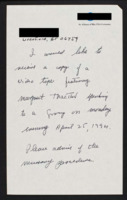 I would like to
receive a copy of a
video tape featuring
Margaret Thatcher speaking
to a group on Monday
evening April 25, 1990.
Please advise of the
necessary procedure.